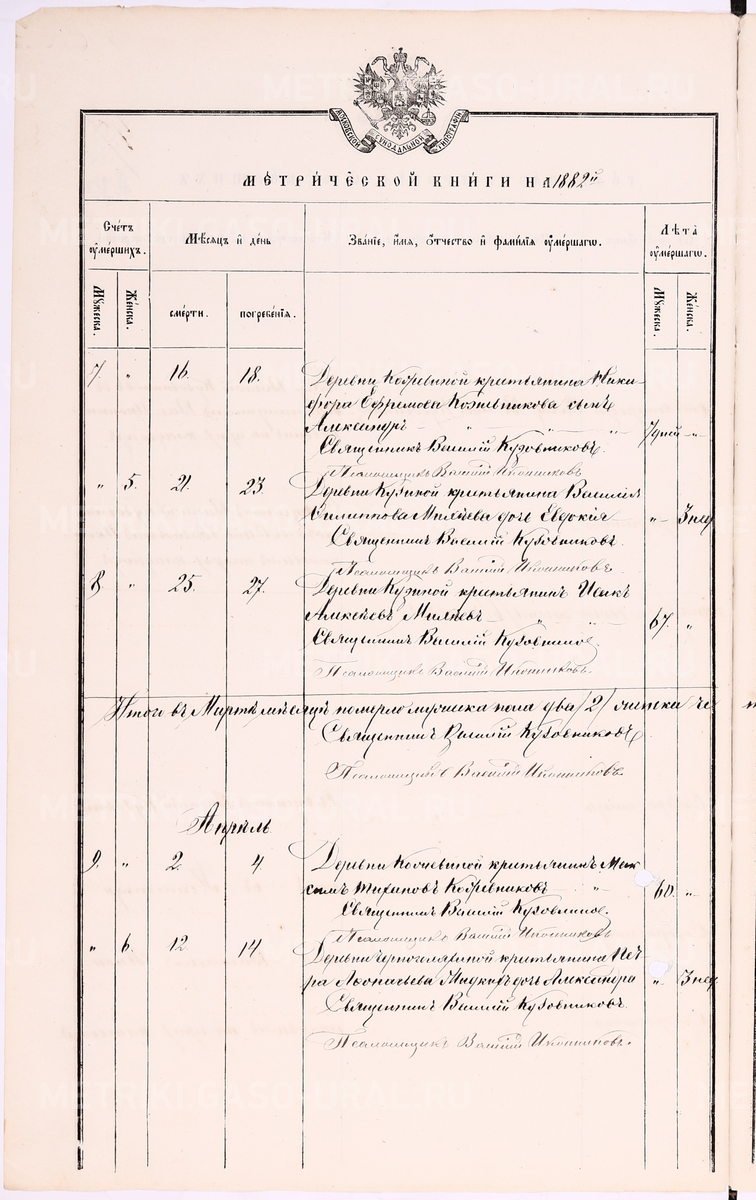 МОСКОВСКОЙ СѴНОДАЛЬНОЙ ТИПОГРАФІИ
МЕТРИЧЕСКОЙ КНИГИ НА 1882й
Счетъ умершихъ.
Мѣсяцъ и день
Званіе, имя, отчество и фамилія умершаго.
Лѣта умершаго.
Мужеска.
Женска.
смерти.
погребенія.
Мужеска.
Женска.
7 " 16. 18. Деревни Кобревиной крестьянина Ники-
фора Ефремова Кожевникова сынъ
Александръ " " " 7 дней "
Священникъ Василій Кузовниковъ.
Псаломщикъ Василій Иконниковъ
" 5. 21. 23. Деревни Кузиной крестьянина Василія
Филиппова Миляева дочь Евдокія " 3 нед
Священникъ Василій Кузовниковъ.
Псаломщикъ Василій Иконниковъ.
8 " 25. 27. Деревни Кузиной крестьянинъ Исакъ
Алексѣевъ Миляевъ " " 67. "
Священникъ Василій Кузовниковъ.
Псаломщикъ Василій Иконниковъ.
Итого въ Мартѣ мѣсяцѣ померло мужеска пола два /2/ женска че
Священникъ Василій Кузовниковъ
Псаломщикъ Василій Иконниковъ.
Апрѣль
9. " 2. 4. Деревни крестьянинъ Мак-
симъ Тихановъ " 60. "
Священникъ Василій Кузовниковъ.
Псаломщикъ Василій Иконниковъ
" 6. 12 14. Деревни крестьянина Пет-
ра Леонтьева дочь Александра " 3 нед.
Священникъ Василій Кузовниковъ.
Псаломщикъ Василій Иконниковъ.
METRIKI.GASO-URAL.RU